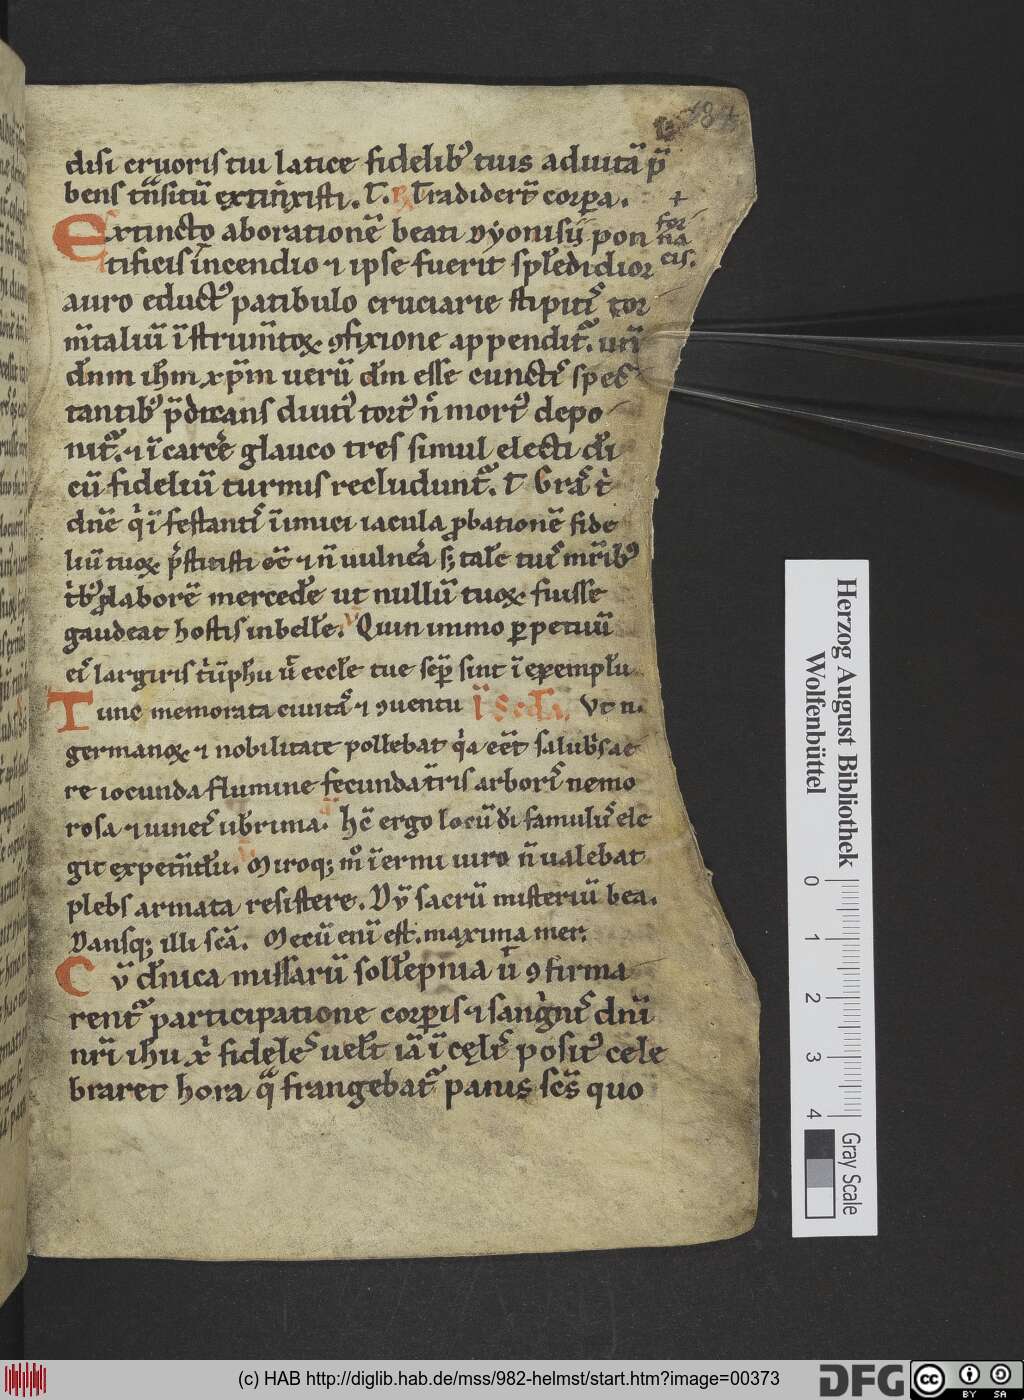 disi cruoris tui latice fidelib᾽ tuis aduitā p̄
bens tn̄situ extin̄xisti. T. R Tradider̄t corpa.
Extincto aboratione beati dyonisij pon
+ for
na
cis.
tificis incendio ⁊ ipse fuerit spledidior
auro educt᾽ patibulo cruciarie stipiti tor
m̄taliū īstrum̄toꝝ ꝯfixione appendit᾽. un̄
dn̄m ihm xp̄m uerū dm̄ esse cuncti spec
tantib᾽ p̄dicans diuti᾽ tort᾽ n̄ mort᾽ depo
nit᾽. ⁊ ī carcere glauco tres simul electi di
cū fideliū turmis recludunt᾽. T Gra t
dn̄e q ī festanti inimici iacula ꝓbatione fide
liū tuoꝝ p̄stitisti ⁊ n̄ uulnera s; tale tui mr̄ib᾽
ꝓ labore mercede ut nullū tuoꝝ fuisse
gaudeat hostis inbelle. Quin immo ꝑpetuū
ei largiris triūphū ū eccle tue semp sint ī exemplū
Tunc memorata ciuita ⁊ ꝯuentu I Seda. Vt n.
germanoꝝ ⁊ nobilitate pollebat q̄a eēt salubs ae
re iocunda flumine fecunda t̄ris arbori nemo
rosa ⁊ uinet᾽ ub̄rima. hc̄ ergo locū di famulu᾽ ele
git expetn̄dū. Miroq; mo īermi uiro n̄ ualebat
plebs armata resistere. Dy sacrū misteriū bea.
Dansq; illi scā. Mecū enī est. maxima mer.
Cū dn̄ica missarū sollepnia ū ꝯfirma
rent᾽ participatione corpis ⁊ sanguini dn̄i
nr̄i ihu x fidele uelt iā ī celi posit᾽ cele
braret hora q̄ frangebat᾽ panis scs quo
Herzog August Bibliothek
Wolfenbüttel
0 1 2 3 4
Gray Scale
(c) HAB http://diglib.hab.de/mss/982-helmst/start.htm?image=00373
DFG
cc BY SA